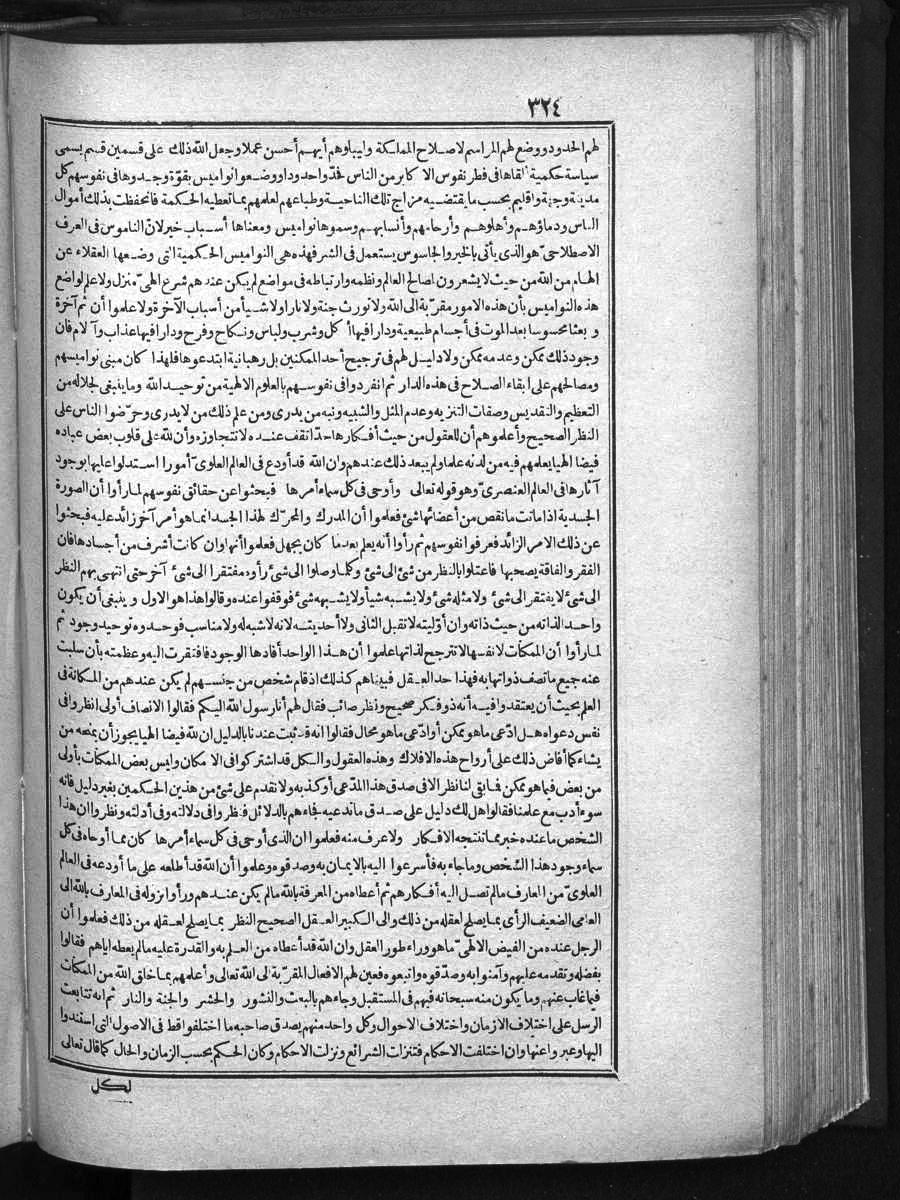 ٣٢٤
لهم الحدود ووضع لهم المراسم لاصلاح المملكة وليبلوهم أيهم أحسن عملا وجعل الله ذلك على قسمين قسم يسمى
سياسة حكمية ألقاها فى فطر نفوس الاكابر من الناس فحدّوا حدودا ووضعوا نواميس بقوّة وجدوها فى نفوسهم كل
مدينة وجهة واقليم بحسب ما يقتضيه مزاج تلك الناحية وطباعهم لعلمهم بما تعطيه الحكمة فانحفظت بذلك أموال
الناس ودماؤهم وأهلوهم وأرحامهم وأنسابهم وسموها نواميس ومعناها أسباب خير لانّ الناموس فى العرف
الاصطلاحىّ هو الذى يأتى بالخير والجاسوس يستعمل فى الشر فهذه هى النواميس الحكمية التى وضعها العقلاء عن
الهام من الله من حيث لا يشعرون لمصالح العالم ونظمه وارتباطه فى مواضع لم يكن عندهم شرع الهىّ منزل ولا علم لواضع
هذه النواميس بأن هذه الامور مقرّبة الى الله ولا تورث جنة ولا نارا ولا شيأ من أسباب الآخرة ولا علموا أن ثم آخرة
و بعثا محسوسا بعد الموت فى أجسام طبيعية ودارا فيها أكل وشرب ولباس ونكاح وفرح ودارا فيها عذاب وآلام فان
وجود ذلك ممكن وعدمه ممكن ولا دليل لهم فى ترجيح أحد الممكنين بل رهبانية ابتدعوها فلهذا كان مبنى نواميسهم
ومصالحهم على ابقاء الصلاح فى هذه الدار ثم انفردوا فى نفوسهم بالعلوم الالهية من توحيد الله وما ينبغى لجلاله من
التعظيم والتقديس وصفات التنزيه وعدم المثل والشبيه ونبه من يدرى ومن علم ذلك من لا يدرى وحرّضوا الناس على
النظر الصحيح وأعلموهم أن للعقول من حيث أفكارها حدّا تقف عنده لا تتجاوزه وأن لله على قلوب بعض عباده
فيضا الهيا يعلمهم فيه من لدنه علما ولم يبعد ذلك عندهم وان الله قد أودع فى العالم العلوىّ أمورا استدلوا عليها بوجود
آثارها فى العالم العنصرىّ وهو قوله تعالى وأوحى فى كل سماء أمرها فبحثوا عن حقائق نفوسهم لما رأوا أن الصورة
الجسدية اذا ماتت ما نقص من أعضائها شئ فعلموا أن المدرك والمحرّك لهذا الجسد انما هو أمر آخر زائد عليه فبحثوا
عن ذلك الامر الزائد فعرفوا نفوسهم ثم رأوا أنه يعلم بعد ما كان يجهل فعلموا أنها وان كانت أشرف من أجسادها فان
الفقر والفاقة يصحبها فاعتلوا بالنظر من شئ الى شئ وكلما وصلوا الى شئ رأوه مفتقرا الى شئ آخر حتى انتهى بهم النظر
الى شئ لا يفتقر الى شئ ولا مثله شئ ولا يشبه شيأ ولا يشبهه شئ فوقفوا عنده وقالوا هذا هو الاول وينبغى أن يكون
واحدا لذاته من حيث ذاته وان أوّليته لا تقبل الثانى ولا أحديته لانه لا شبه له ولا مناسب فوحدوه توحيد وجود ثم
لما رأوا أن الممكنات لانفسها لا تترجح لذاتها علموا أن هذا الواحد أفادها الوجود فافتقرت اليه وعظمته بأن سلبت
عنه جميع ما تصف ذواتها به فهذا حد العقل فبيناهم كذلك اذ قام شخص من جنسهم لم يكن عندهم من المكانة فى
العلم بحيث أن يعتقدوا فيه أنه ذو فكر صحيح ونظر صائب فقال لهم أنا رسول الله اليكم فقالوا الانصاف أولى انظروا فى
نفس دعواه هل ادّعى ما هو ممكن أو ادّعى ما هو محال فقالوا انه قد ثبت عندنا بالدليل ان لله فيضا الهيا يجوز أن يمنحه من
يشاء كما أفاض ذلك على أرواح هذه الافلاك وهذه العقول والكل قد اشتركوا فى الامكان وليس بعض الممكنات بأولى
من بعض فيما هو ممكن فما بقى لنا نظر الا فى صدق هذا المدّعى أو كذبه ولا نقدم على شئ من هذين الحكمين بغير دليل فانه
سوء أدب مع علمنا فقالوا هل لك دليل على صدق ما تدعيه فجاءهم بالدلائل فنظروا فى دلالته وفى أدلته ونظروا ان هذا
الشخص ما عنده خبر مما تنتجه الافكار ولا عرف منه فعلموا ان الذى أوحى فى كل سماء أمرها كان مما أوحاه فى كل
سماء وجود هذا الشخص وما جاء به فأسرعوا اليه بالايمان به وصدقوه وعلموا أن الله قد أطلعه على ما أودعه فى العالم
العلوىّ من المعارف ما لم تصل اليه أفكارهم ثم أعطاه من المعرفة بالله ما لم يكن عندهم ورأوا نزوله فى المعارف بالله الى
العامى الضعيف الرأى بما يصلح لعقله من ذلك والى الكبير العقل الصحيح النظر بما يصلح لعقله من ذلك فعلموا أن
الرجل عنده من الفيض الالهىّ ما هو وراء طور العقل وان الله قد أعطاه من العلم به والقدرة عليه ما لم يعطه اياهم فقالوا
بفضله وتقدمه عليهم وآمنوا به وصدّقوه واتبعوه فعين لهم الافعال المقرّبة الى الله تعالى وأعلمهم بما خلق الله من الممكنات
فيما غاب عنهم وما يكون منه سبحانه فيهم فى المستقبل وجاءهم بالبعث والنشور والحشر والجنة والنار ثم انه تتابعت
الرسل على اختلاف الازمان واختلاف الاحوال وكل واحد منهم يصدق صاحبه ما اختلفوا قط فى الاصول التى استندوا
اليها وعبروا عنها وان اختلفت الاحكام فتنزلت الشرائع ونزلت الاحكام وكان الحكم بحسب الزمان والحال كما قال تعالى
لكل